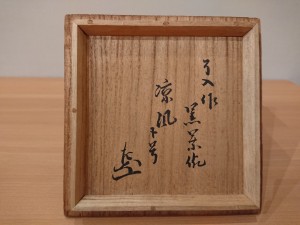 了入作
黒茶碗
涼風ト号